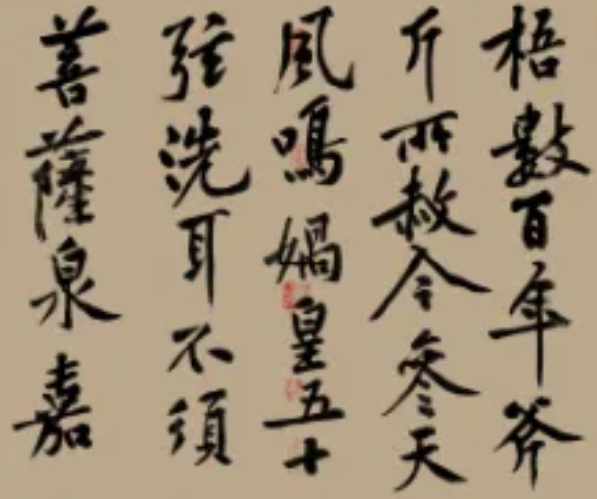 梧數百年斧
斤所赦今參天
風鳴媧皇五十
弦洗耳不須
菩薩泉嘉